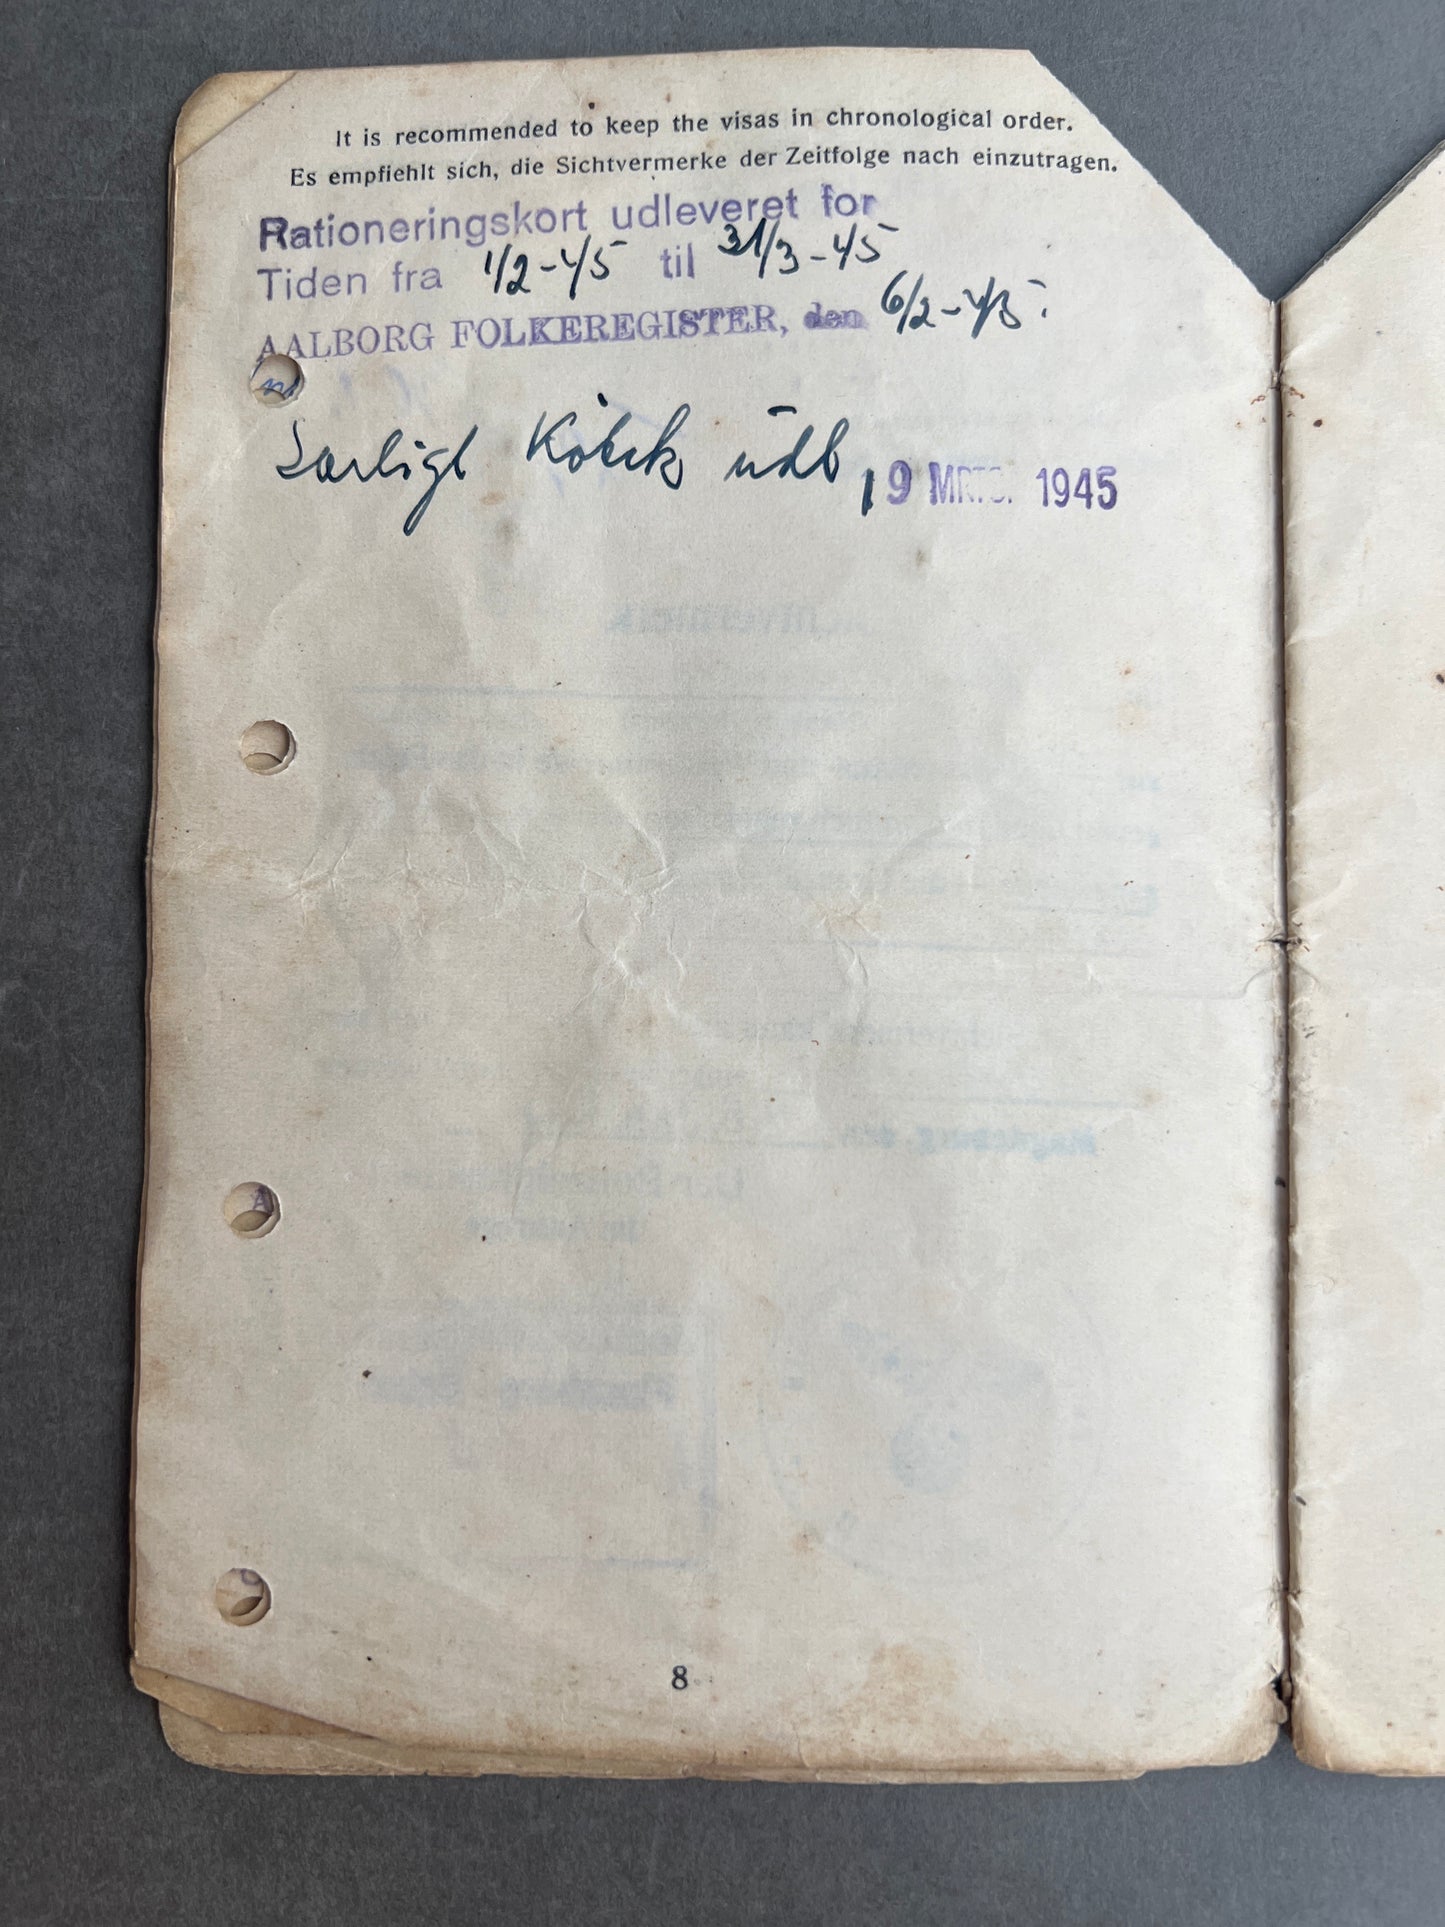 It is recommended to keep the visas in chronological order.
Es empfiehlt sich, die Sichtvermerke der Zeitfolge nach einzutragen.
Rationeringskort udleveret for
Tiden fra 1/2-45 til 31/3-45
AALBORG FOLKEREGISTER, den 6/2-45.
Særligt udl 9 MRTS. 1945
8